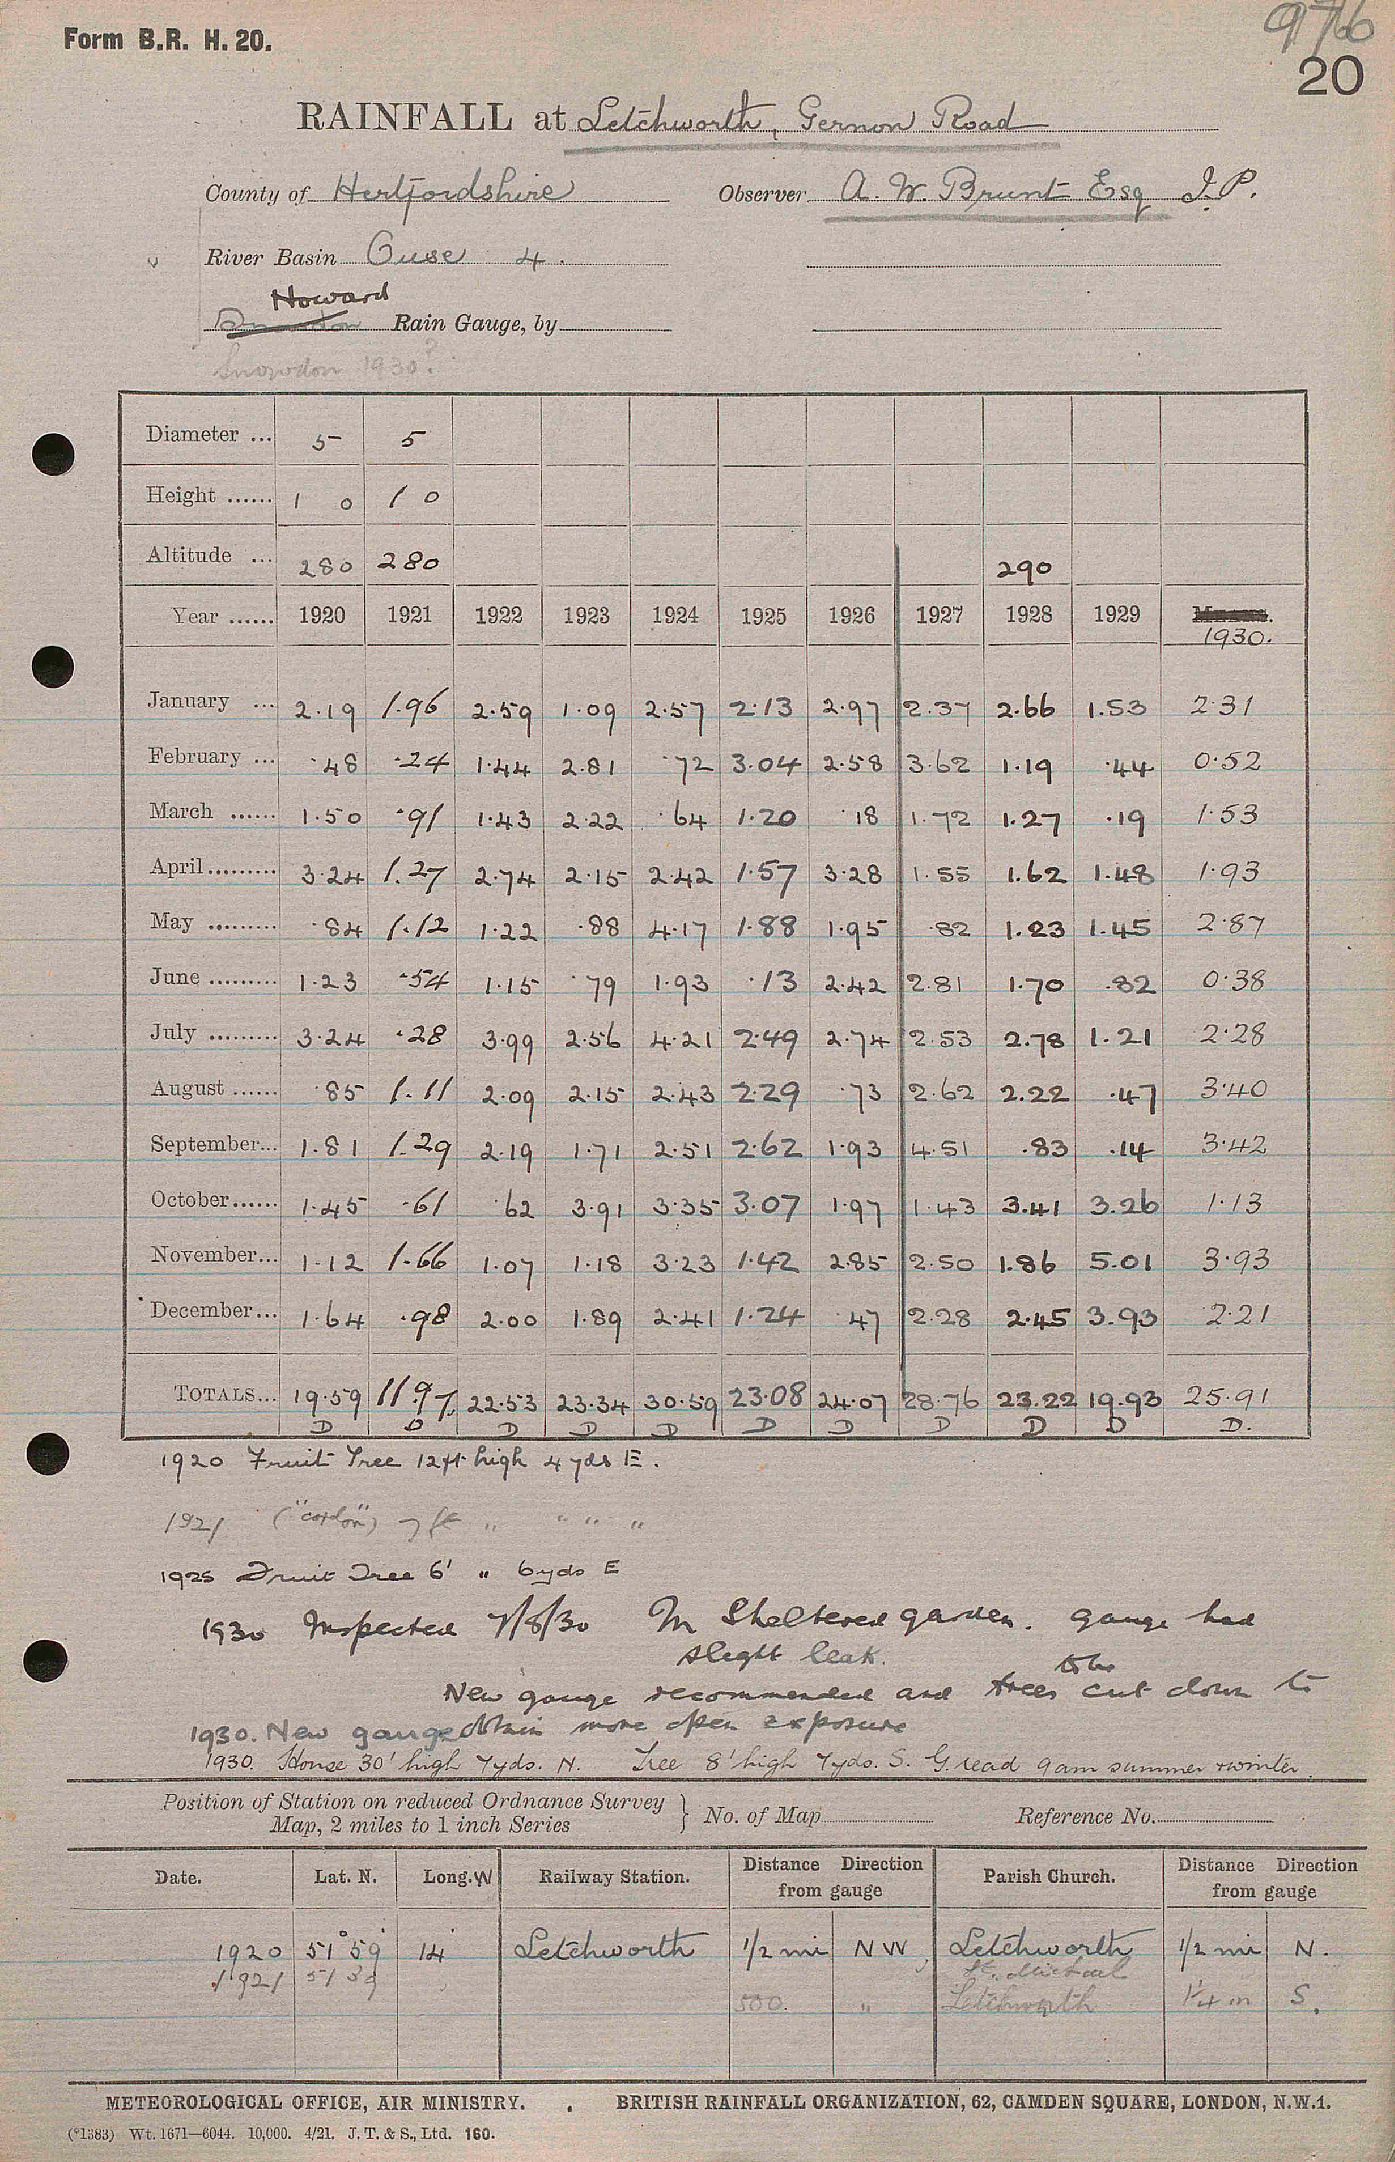 Form B.R. H. 20.
976
20
RAINFALL at Letchworth, Gernon Road
County of Hertfordshire Observer A. W. Brunt Esq J.P.
River Basin Ouse 4.
Howard
Rain Gauge, by
Snowdon 1930?
Diameter ... 5 5
Height ...... 1 0 1 0
Altitude ... 280 280 290
Year ...... 1920 1921 1922 1923 1924 1925 1926 1927 1928 1929 1930.
January ... 2.19 1.96 2.59 1.09 2.57 2.13 2.97 2.37 2.66 1.53 2.31
February ... .48 .24 1.44 2.81 .72 3.04 2.58 3.62 1.19 .44 0.52
March ...... 1.50 .91 1.43 2.22 .64 1.20 .18 1.72 1.27 .19 1.53
April ......... 3.24 1.27 2.74 2.15 2.42 1.57 3.28 1.55 1.62 1.48 1.93
May ......... .84 1.12 1.22 .88 4.17 1.88 1.95 .82 1.23 1.45 2.87
June ......... 1.23 .54 1.15 .79 1.93 .13 2.42 2.81 1.70 .82 0.38
July ......... 3.24 .28 3.99 2.56 4.21 2.49 2.74 2.53 2.78 1.21 2.28
August ...... .85 1.11 2.09 2.15 2.43 2.29 .73 2.62 2.22 .47 3.40
September... 1.81 1.29 2.19 1.71 2.51 2.62 1.93 4.51 .83 .14 3.42
October...... 1.45 .61 .62 3.91 3.35 3.07 1.97 1.43 3.41 3.26 1.13
November... 1.12 1.66 1.07 1.18 3.23 1.42 2.85 2.50 1.86 5.01 3.93
December... 1.64 .98 2.00 1.89 2.41 1.24 .47 2.28 2.45 3.93 2.21
TOTALS... 19.59 11.97 22.53 23.34 30.59 23.08 24.07 28.76 23.22 19.93 25.91
D D D D D D D D D D D.
1920 Fruit Tree 12ft high 4 yds E.
1921 ("cordon") 7 ft " " " "
1925 Fruit Tree 6' " 6 yds E
1930 Inspected 7/8/30 In Sheltered garden. gauge had
slight leak.
to be
New gauge recommended and trees cut down to
1930. New gauge obtain more open exposure
1930. House 30' high 7yds. N. Tree 8' high 7yds. S. G. read 9am summer & winter.
Position of Station on reduced Ordnance Survey
Map, 2 miles to 1 inch Series } No. of Map Reference No.
Date. Lat. N. Long. W Railway Station. Distance Direction from gauge Parish Church. Distance Direction from gauge
1920 51° 59' 14' Letchworth 1/2 mi NW Letchworth 1/2 mi N.
1921 51 59 St. Michael
500. " Letchworth 1/4 m S.
METEOROLOGICAL OFFICE, AIR MINISTRY. BRITISH RAINFALL ORGANIZATION, 62, CAMDEN SQUARE, LONDON, N.W.1.
(*1383) Wt. 1671—6044. 10,000. 4/21. J. T. & S., Ltd. 160.